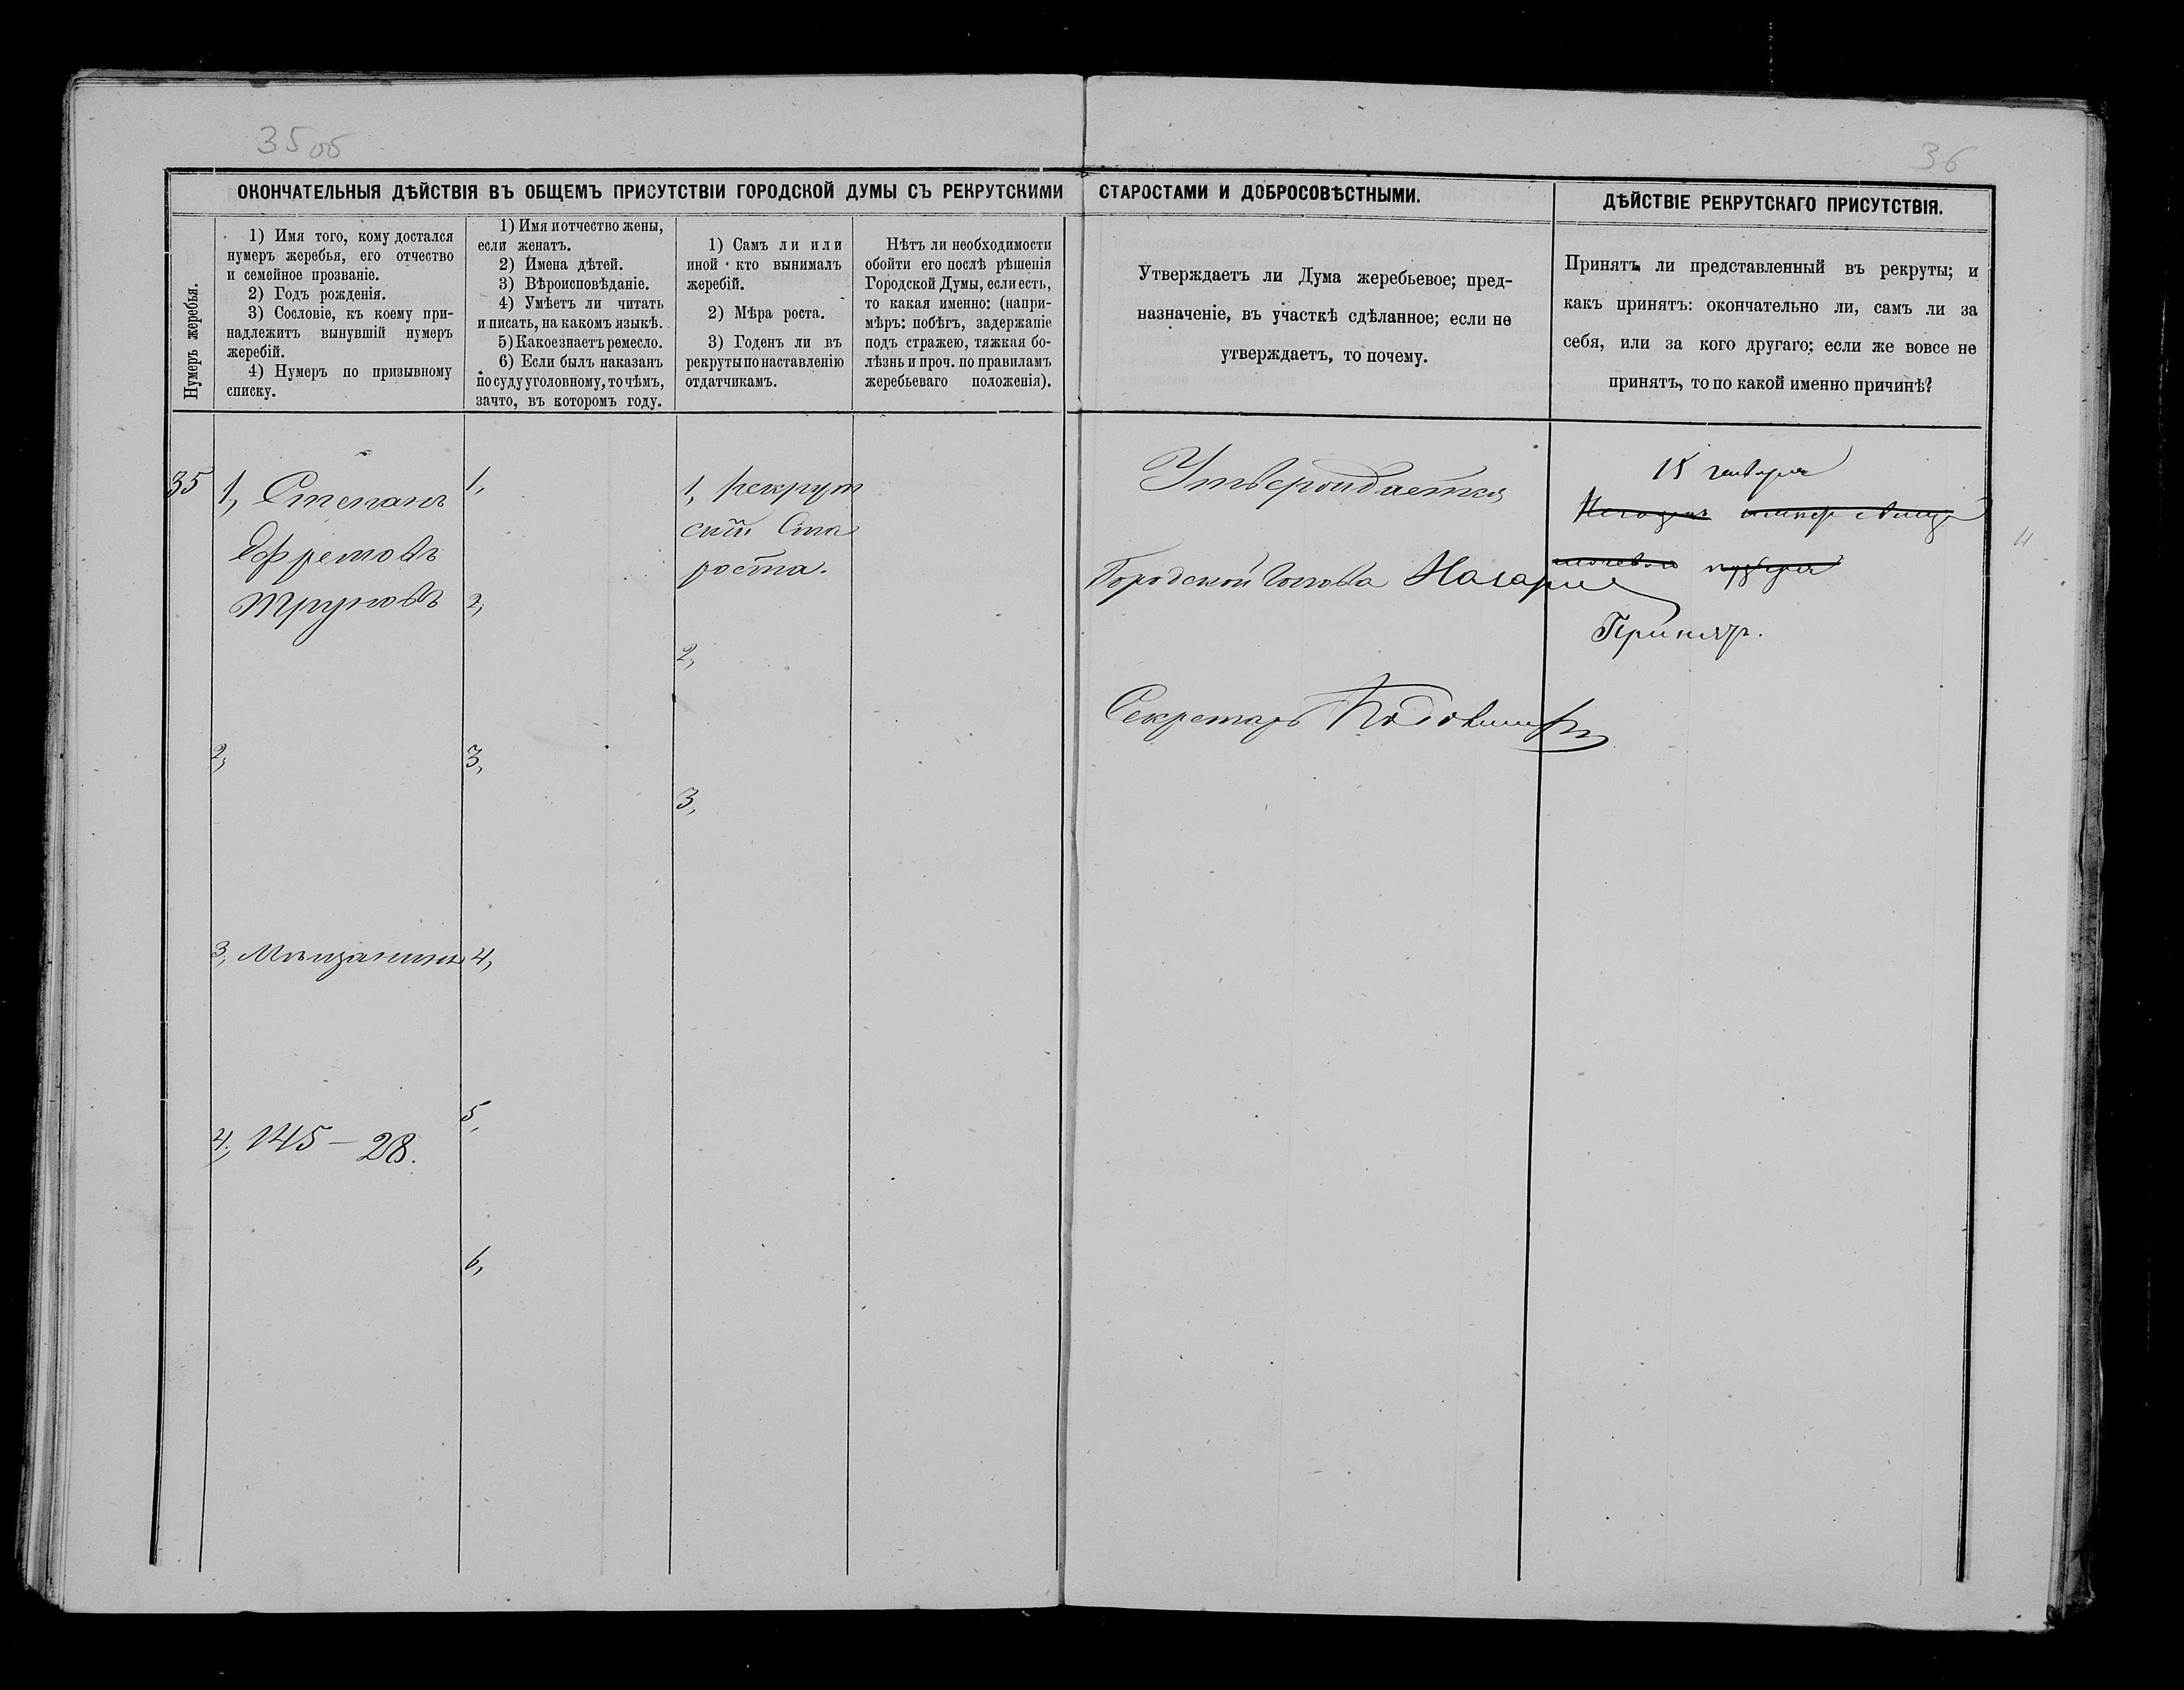 35 об
36
ОКОНЧАТЕЛЬНЫЯ ДѢЙСТВІЯ ВЪ ОБЩЕМЪ ПРИСУТСТВІИ ГОРОДСКОЙ ДУМЫ СЪ РЕКРУТСКИМИ СТАРОСТАМИ И ДОБРОСОВѢСТНЫМИ.
ДѢЙСТВІЕ РЕКРУТСКАГО ПРИСУТСТВІЯ.
Нумеръ жеребья.
1) Имя того, кому достался
нумеръ жеребья, его отчество
и семейное прозваніе.
2) Годъ рожденія.
3) Сословіе, къ коему при-
надлежитъ вынувшій нумеръ
жеребій.
4) Нумеръ по призывному
списку.
1) Имя и отчество жены,
если женатъ.
2) Имена дѣтей.
3) Вѣроисповѣданіе.
4) Умѣетъ ли читать
и писать, на какомъ языкѣ.
5) Какое знаетъ ремесло.
6) Если былъ наказанъ
по суду уголовному, то чѣмъ,
за что, въ которомъ году.
1) Самъ ли или
иной кто вынималъ
жеребій.
2) Мѣра роста.
3) Годенъ ли въ
рекруты по наставленію
отдатчикамъ.
Нѣтъ ли необходимости
обойти его послѣ рѣшенія
Городской Думы, если есть,
то какая именно: (напри-
мѣръ: побѣгъ, задержаніе
подъ стражею, тяжкая бо-
лѣзнь и проч. по правиламъ
жеребьеваго положенія).
Утверждаетъ ли Дума жеребьевое; пред-
назначеніе, въ участкѣ сдѣланное; если не
утверждаетъ, то почему.
Принятъ ли представленный въ рекруты; и
какъ принятъ: окончательно ли, самъ ли за
себя, или за кого другаго; если же вовсе не
принятъ, то по какой именно причинѣ?
35
1, Степанъ
Ефремовъ
Труновъ
2,
3, Мѣщанинъ
4, 145 — 28.
1,
2,
3,
4,
5,
6,
1, Рекрут
скій Ста
роста.
2,
3,
Утверждается
Городской Голова
Секретарь
15 генваря
Принятъ.